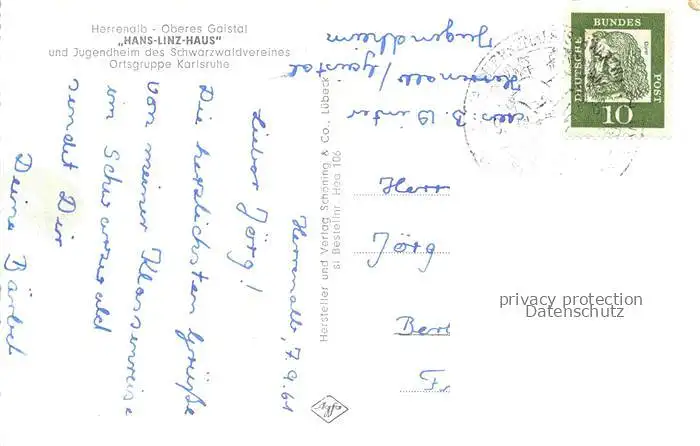 Herrenalb - Oberes Gaistal
„HANS-LINZ-HAUS"
und Jugendheim des Schwarzwaldvereines
Ortsgruppe Karlsruhe
Herrenalb, 7.9.61
Lieber Jörg!
Die herzlichsten Grüße
von meiner Klassenreise
im Schwarzwald
sendet Dir
Deine Bärbel
Hersteller und Verlag Schöning & Co., Lübeck
si Bestellnr. Hea 106
B. Winter
Herrenalb/Gaistal
Jugendheim
DEUTSCHE
BUNDES
POST
10
Herrn
Jörg
privacy protection
Datenschutz